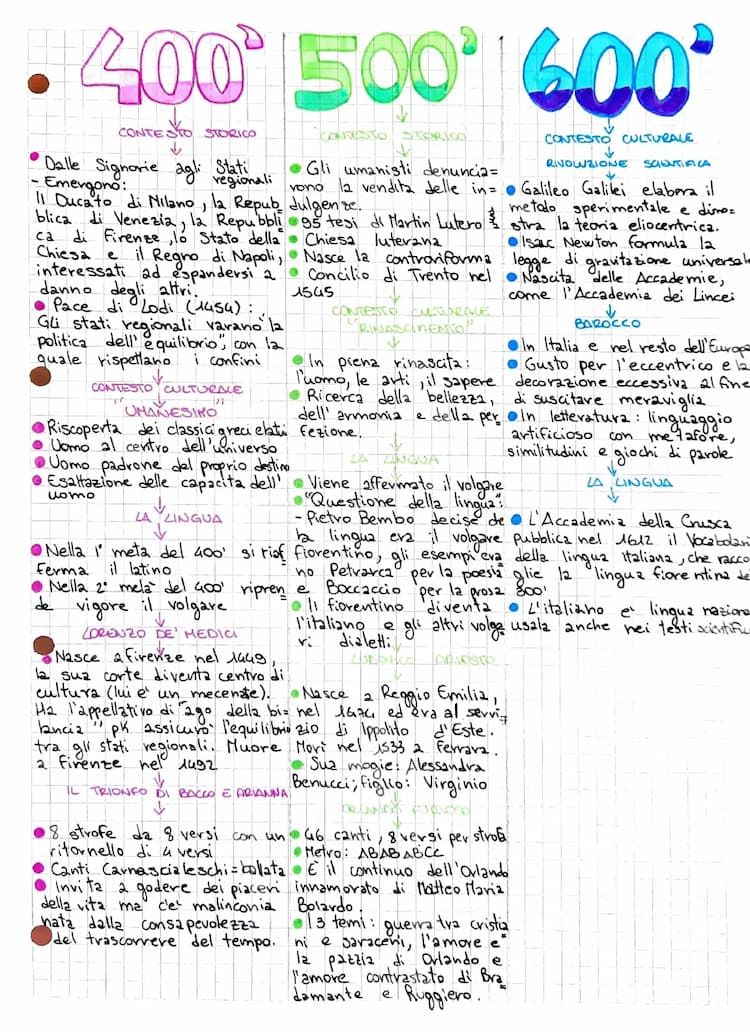 400'
CONTESTO STORICO
Dalle Signorie agli Stati
regionali
- Emergono:
Il Ducato di Milano, la Repub
blica di Venezia, la Repubbli
ca di Firenze, lo Stato della
Chiesa e il Regno di Napoli,
interessati ad espandersi a
danno degli altri.
Pace di Lodi (1454):
Gli stati regionali varano la
politica dell'"equilibrio", con la
quale rispettano i confini
CONTESTO CULTURALE
"UMANESIMO"
Riscoperta dei classici greci e lati
Uomo al centro dell'universo
Uomo padrone del proprio destino
Esaltazione delle capacità dell'
uomo
LA LINGUA
Nella 1° metà del 400' si riaf
ferma il latino
Nella 2° metà del 400' ripren
de vigore il volgare
LORENZO DE' MEDICI
Nasce a Firenze nel 1449,
la sua corte diventa centro di
cultura (lui è un mecenate).
Ha l'appellativo di "ago della bi=
lancia" pk assicurò l'equilibrio
tra gli stati regionali. Muore
a Firenze nel 1492
IL TRIONFO DI BACCO E ARIANNA
8 strofe da 8 versi con un
ritornello di 4 versi
Canti Carnascialeschi = ballata
Invita a godere dei piaceri
della vita ma c'è malinconia
nata dalla consapevolezza
del trascorrere del tempo.
500'
CONTESTO STORICO
Gli umanisti denuncia=
rono la vendita delle in=
dulgenze.
95 tesi di Martin Lutero
Chiesa luterana
Nasce la controriforma
Concilio di Trento nel
1545
CONTESTO CULTURALE
"RINASCIMENTO"
In piena rinascita:
l'uomo, le arti, il sapere
Ricerca della bellezza,
dell'armonia e della per
fezione.
LA LINGUA
Viene affermato il volgare
"Questione della lingua":
- Pietro Bembo decise che
la lingua era il volgare
fiorentino, gli esempi era
no Petrarca per la poesia
e Boccaccio per la prosa
Il fiorentino diventa
l'italiano e gli altri volga
ri dialetti
LUDOVICO ARIOSTO
Nasce a Reggio Emilia,
nel 1474 ed era al servi
zio di Ippolito d'Este.
Morì nel 1533 a Ferrara.
Sua moglie: Alessandra
Benucci; figlio: Virginio
ORLANDO FURIOSO
46 canti, 8 versi per strofa
Metro: ABABABCC
È il continuo dell'Orlando
innamorato di Matteo Maria
Boiardo.
I 3 temi: guerra tra cristia
ni e saraceni, l'amore e
la pazzia di Orlando e
l'amore contrastato di Bra
damante e Ruggiero.
600'
CONTESTO CULTURALE
RIVOLUZIONE SCIENTIFICA
Galileo Galilei elabora il
metodo sperimentale e dimo=
stra la teoria eliocentrica.
Isac Newton formula la
legge di gravitazione universale
Nascita delle Accademie,
come l'Accademia dei Lincei
BAROCCO
In Italia e nel resto dell'Europa
Gusto per l'eccentrico e la
decorazione eccessiva al fine
di suscitare meraviglia
In letteratura: linguaggio
artificioso con metafore,
similitudini e giochi di parole
LA LINGUA
L'Accademia della Crusca
pubblica nel 1612 il Vocabolari
della lingua italiana, che racco
glie la lingua fiorentina del
300'
L'italiano è lingua naziona
usata anche nei testi scientific